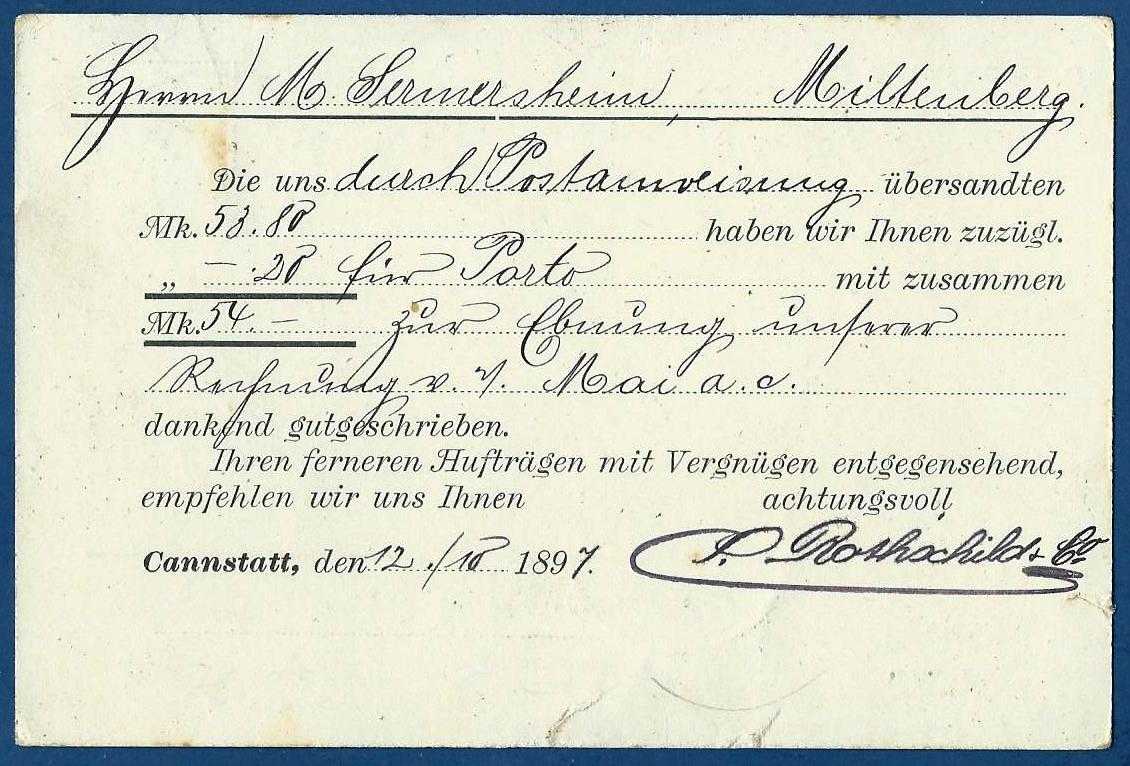 Herrn M. Sermersheim, Miltenberg.
Die uns durch Postanweisung übersandten
Mk. 53.80 haben wir Ihnen zuzügl.
„ —.20 für Porto mit zusammen
Mk. 54.— zur Ebnung unserer
Rechnung v. Mai a. c.
dankend gutgeschrieben.
Ihren ferneren Aufträgen mit Vergnügen entgegensehend,
empfehlen wir uns Ihnen achtungsvoll
Cannstatt, den 12./10 1897. Rothschild & Co